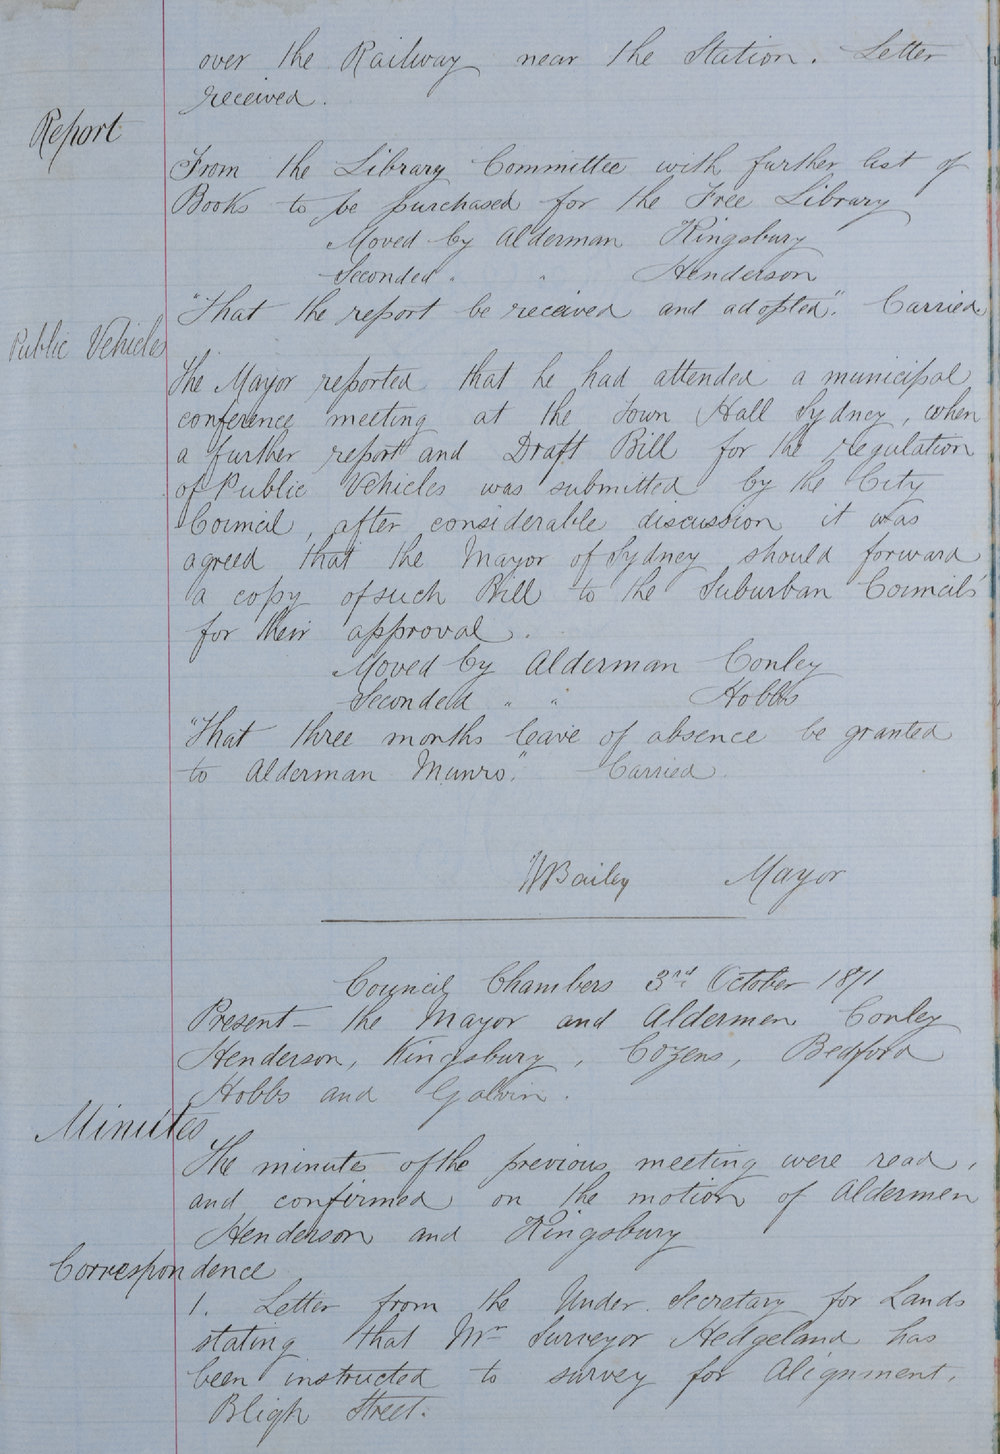 over the Railway near the Station. Letter
received.
Report
From the Library Committee with further list of
Books to be purchased for the Free Library
Moved by Alderman Kingsbury
Seconded " " Henderson
"That the report be received and adopted." Carried.
Public Vehicles
The Mayor reported that he had attended a municipal
conference meeting at the Town Hall Sydney, when
a further report and Draft Bill for the regulation
of Public Vehicles was submitted by the City
Council, after considerable discussion it was
agreed that the Mayor of Sydney should forward
a copy of such Bill to the Suburban Councils
for their approval.
Moved by Alderman Conley
Seconded " " Hobbs
"That three months leave of absence be granted
to Alderman Munro." Carried.
WBailey Mayor
Council Chambers 3rd October 1871
Present - the Mayor and Aldermen Conley
Henderson, Kingsbury, Cozens, Bedford
Hobbs and Galvin.
Minutes
The minutes of the previous meeting were read,
and confirmed on the motion of Aldermen
Henderson and Kingsbury
Correspondence
1. Letter from the Under Secretary for Lands
stating that Mr Surveyor Hedgeland has
been instructed to survey for Alignment,
Bligh Street.